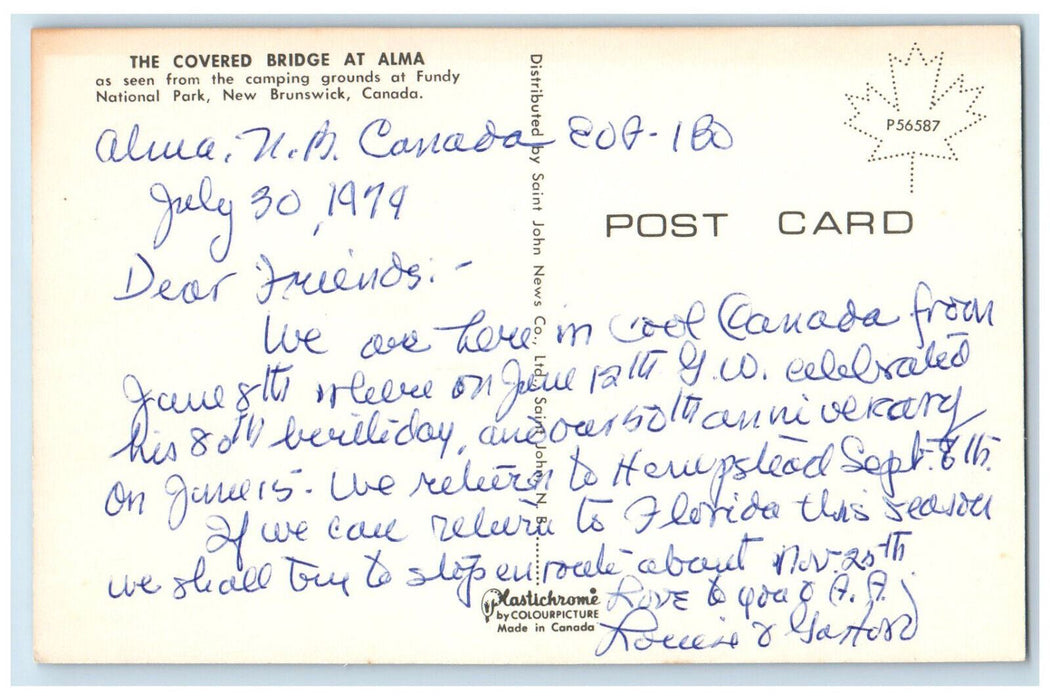 THE COVERED BRIDGE AT ALMA
as seen from the camping grounds at Fundy
National Park, New Brunswick, Canada.
P56587
POST CARD
Distributed by Saint John News Co., Ltd., Saint John, N. B.
Alma, N.B. Canada E0A-1B0
July 30, 1979
Dear Friends:-
We are here in cool Canada from
June 8th where on June 12th G.W. celebrated
his 80th birthday, and our 50th anniversary
on June 15. We return to Hempstead Sept. 8th.
If we can return to Florida this season
we shall try to stop enroute about Nov. 20th.
Love to you & A.A.
Louise &
Plastichrome
by COLOURPICTURE
Made in Canada